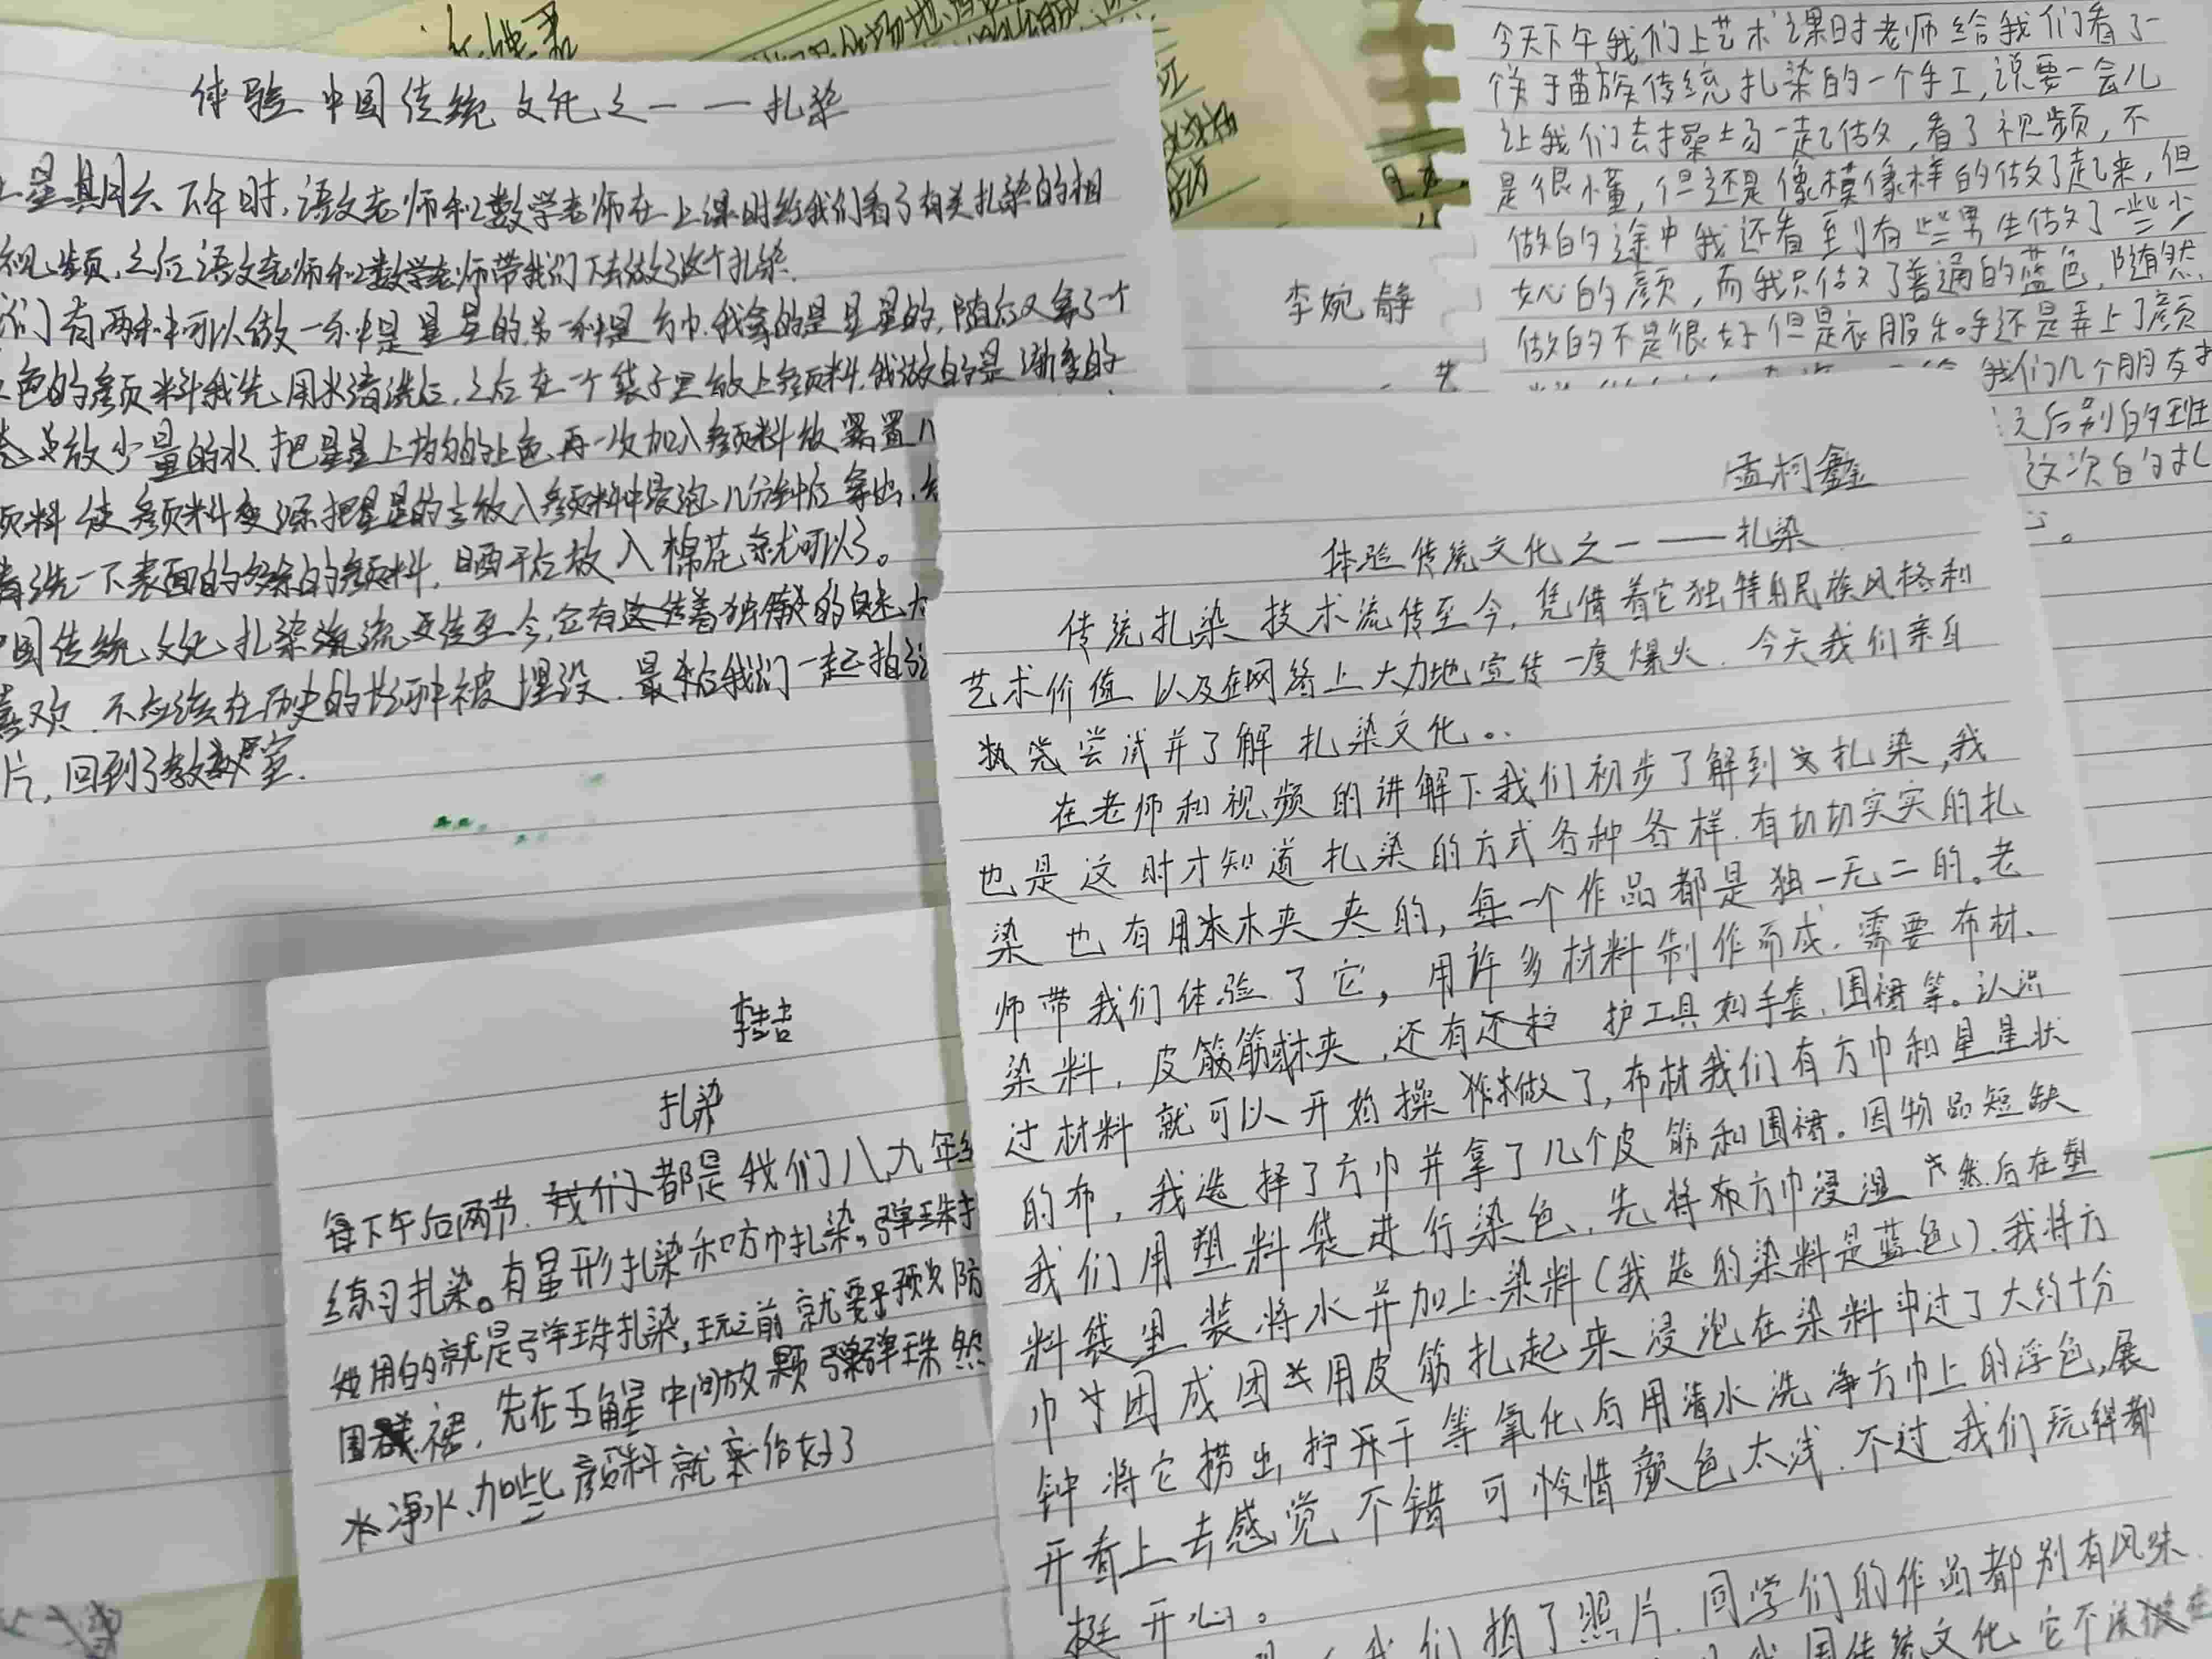 体验中国传统文化之一——扎染
星期六下午时,语文老师和数学老师在上课时给我们看了有关扎染的相
视频,之后语文老师和数学老师带我们下去做了这个扎染.
们有两种可以做一种是星星的,另一种是方巾.我拿的是星星的,随后又拿了一个
色的颜料我先用水清洗后,之后在一个袋子里放上颜料.我做的是渐变的
放少量的水.把星星上均匀的上色.再一次加入颜料放置几
颜料使颜料变深把星星的
放入颜料中浸泡几分钟后拿出.
清洗一下表面的多余的颜料,晒干后放入棉花就可以了。
国传统文化扎染流传至今,它有着独特的魅力
喜欢.不应该在历史的长河中被埋没.最后我们一起拍
片,回到了教室.
李婉静
今天下午我们上艺术课时老师给我们看了一
个关于苗族传统扎染的一个手工,说要一会儿
让我们去操场一起做,看了视频,不
是很懂,但还是像模像样的做了起来,但
做的途中我还看到有些男生做了一些少
女心的颜,而我只做了普通的蓝色,随然
做的不是很好但是衣服和手还是弄上了颜
我们几个朋友
之后别的班
这次的扎
孟柯鑫
体验传统文化之一——扎染
传统扎染技术流传至今,凭借着它独特的民族风格和
艺术价值以及在网络上大力地宣传一度爆火.今天我们亲自
尝试并了解扎染文化。
在老师和视频的讲解下我们初步了解到扎染,我
也是这时才知道扎染的方式各种各样.有切切实实的扎
染也有用木夹夹的,每一个作品都是独一无二的。老
师带我们体验了它,用许多材料制作而成.需要布材、
染料,皮筋木夹,还有护工具如手套,围裙等。认识
过材料就可以开始操做了,布材我们有方巾和星星状
的布,我选择了方巾并拿了几个皮筋和围裙。因物品短缺
我们用塑料袋进行染色,先将方巾浸湿然后在塑
料袋里装将水并加上染料(我选的染料是蓝色).我将方
巾团成团用皮筋扎起来浸泡在染料中过了大约十分
钟将它捞出,拧干等氧化后用清水洗净方巾上的浮色,展
开看上去感觉不错可惜颜色太浅.不过我们玩得都
挺开心。
我们拍了照片.同学们的作品都别有风味.
我国传统文化,它不该
李喆
扎染
每下午后两节.都是我们八九年
练习扎染。有星形扎染和方巾扎染。弹珠
她用的就是弹珠扎染,玩之前就要预先防
围裙,先在五角星中间放颗弹珠然
净水、加些颜料就染好了